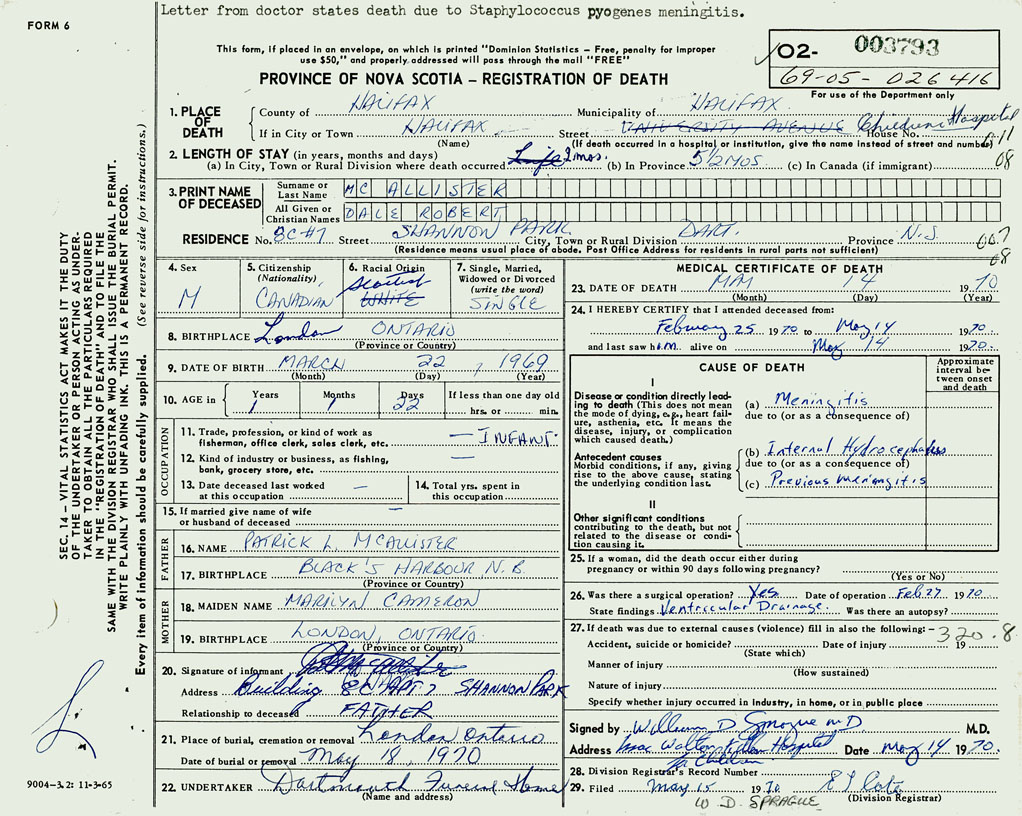 Letter from doctor states death due to Staphylococcus pyogenes meningitis.
FORM 6
This form, if placed in an envelope, on which is printed "Dominion Statistics – Free, penalty for improper
use $50," and properly addressed will pass through the mail "FREE"
PROVINCE OF NOVA SCOTIA – REGISTRATION OF DEATH
02- 003793
69-05-026416
For use of the Department only
SEC. 14 – VITAL STATISTICS ACT MAKES IT THE DUTY
OF THE UNDERTAKER OR PERSON ACTING AS UNDER-
TAKER TO OBTAIN ALL THE PARTICULARS REQUIRED
IN THE "REGISTRATION OF DEATH" AND TO FILE THE
SAME WITH THE DIVISION REGISTRAR WHO SHALL ISSUE THE BURIAL PERMIT.
WRITE PLAINLY WITH UNFADING INK. THIS IS A PERMANENT RECORD.
Every item of information should be carefully supplied. (See reverse side for instructions.)
9004-3.2: 11-3-65
1. PLACE OF DEATH County of HALIFAX Municipality of HALIFAX
If in City or Town HALIFAX Street UNIVERSITY AVENUE House No. Children Hospital
(Name) (If death occurred in a hospital or institution, give the name instead of street and number) 011
2. LENGTH OF STAY (in years, months and days) 08
(a) In City, Town or Rural Division where death occurred Life 2 mos. (b) In Province 5 1/2 MOS (c) In Canada (if immigrant)
3. PRINT NAME OF DECEASED Surname or Last Name MC ALLISTER
All Given or Christian Names DALE ROBERT
RESIDENCE No. 8C#7 Street SHANNON PARK City, Town or Rural Division DART. Province N.S 007
(Residence means usual place of abode. Post Office Address for residents in rural parts not sufficient) 08
4. Sex M
5. Citizenship (Nationality) CANADIAN
6. Racial Origin Scottish WHITE
7. Single, Married, Widowed or Divorced (write the word) SINGLE
8. BIRTHPLACE London ONTARIO
(Province or Country)
9. DATE OF BIRTH MARCH 22, 1969
(Month) (Day) (Year)
10. AGE in Years 1 Months 1 Days 22 If less than one day old hrs. or min.
OCCUPATION
11. Trade, profession, or kind of work as
fisherman, office clerk, sales clerk, etc. — INFANT
12. Kind of industry or business, as fishing,
bank, grocery store, etc. —
13. Date deceased last worked
at this occupation —
14. Total yrs. spent in
this occupation
15. If married give name of wife
or husband of deceased —
FATHER
16. NAME PATRICK L. MCALLISTER
17. BIRTHPLACE BLACK'S HARBOUR, N.B.
(Province or Country)
MOTHER
18. MAIDEN NAME MARILYN CAMERON
19. BIRTHPLACE LONDON, ONTARIO
(Province or Country)
20. Signature of informant
Address Building 8C APT 7 SHANNON PARK
Relationship to deceased FATHER
21. Place of burial, cremation or removal London Ontario
Date of burial or removal May 18, 1970
22. UNDERTAKER Dartmouth Funeral Home
(Name and address)
MEDICAL CERTIFICATE OF DEATH
23. DATE OF DEATH MM 14 1970
(Month) (Day) (Year)
24. I HEREBY CERTIFY that I attended deceased from:
February 25 1970 to May 14 1970
and last saw him alive on May 14 1970.
CAUSE OF DEATH
Approximate interval between onset and death
I
Disease or condition directly lead-
ing to death (This does not mean
the mode of dying, e.g., heart fail-
ure, asthenia, etc. It means the
disease, injury, or complication
which caused death.)
(a) Meningitis
due to (or as a consequence of)
Antecedent causes
Morbid conditions, if any, giving
rise to the above cause, stating
the underlying condition last.
(b) Internal Hydrocephalus
due to (or as a consequence of)
(c) Previous meningitis
II
Other significant conditions
contributing to the death, but not
related to the disease or condi-
tion causing it.
25. If a woman, did the death occur either during
pregnancy or within 90 days following pregnancy?
(Yes or No)
26. Was there a surgical operation? Yes Date of operation Feb 27 1970
State findings Ventricular Drainage. Was there an autopsy?
27. If death was due to external causes (violence) fill in also the following: – 320.8
Accident, suicide or homicide? Date of injury 19
(State which)
Manner of injury
(How sustained)
Nature of injury
Specify whether injury occurred in industry, in home, or in public place
Signed by William D Sprague M.D M.D.
Address Izaac Walton Killam Hospital for Children Date May 14 1970.
28. Division Registrar's Record Number
29. Filed May 15 1970
(Division Registrar)
W D. SPRAGUE